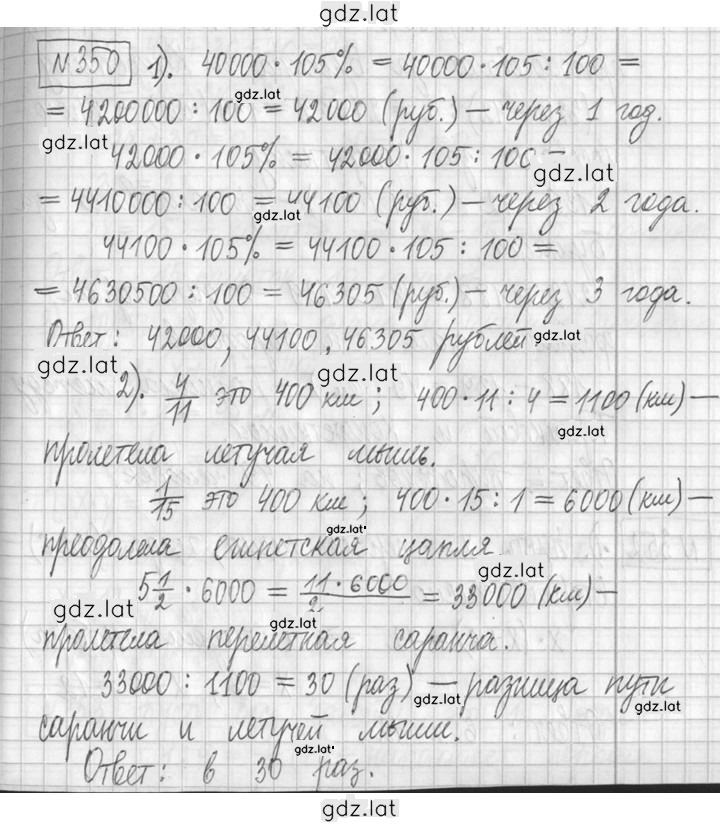 gdz.lat
№350 1). 40000 · 105% = 40000 · 105 : 100 =
gdz.lat
= 4200000 : 100 = 42000 (руб.) — через 1 год.
gdz.lat
42000 · 105% = 42000 · 105 : 100 =
gdz.lat
= 4410000 : 100 = 44100 (руб.) — через 2 года.
gdz.lat
44100 · 105% = 44100 · 105 : 100 =
= 4630500 : 100 = 46305 (руб.) — через 3 года.
Ответ: 42000, 44100, 46305 рублей.
gdz.lat
gdz.lat
gdz.lat
2). 4/11 это 400 км; 400 · 11 : 4 = 1100 (км) —
gdz.lat
пролетела летучая мышь.
1/15 это 400 км; 400 · 15 : 1 = 6000 (км) —
gdz.lat
преодолела египетская цапля.
gdz.lat
5 1/2 · 6000 = 11 · 6000/2 = 33000 (км) —
gdz.lat
gdz.lat
пролетела перелетная саранча.
33000 : 1100 = 30 (раз) — разница пути
gdz.lat
gdz.lat
саранчи и летучей мыши.
gdz.lat
Ответ: в 30 раз.
gdz.lat